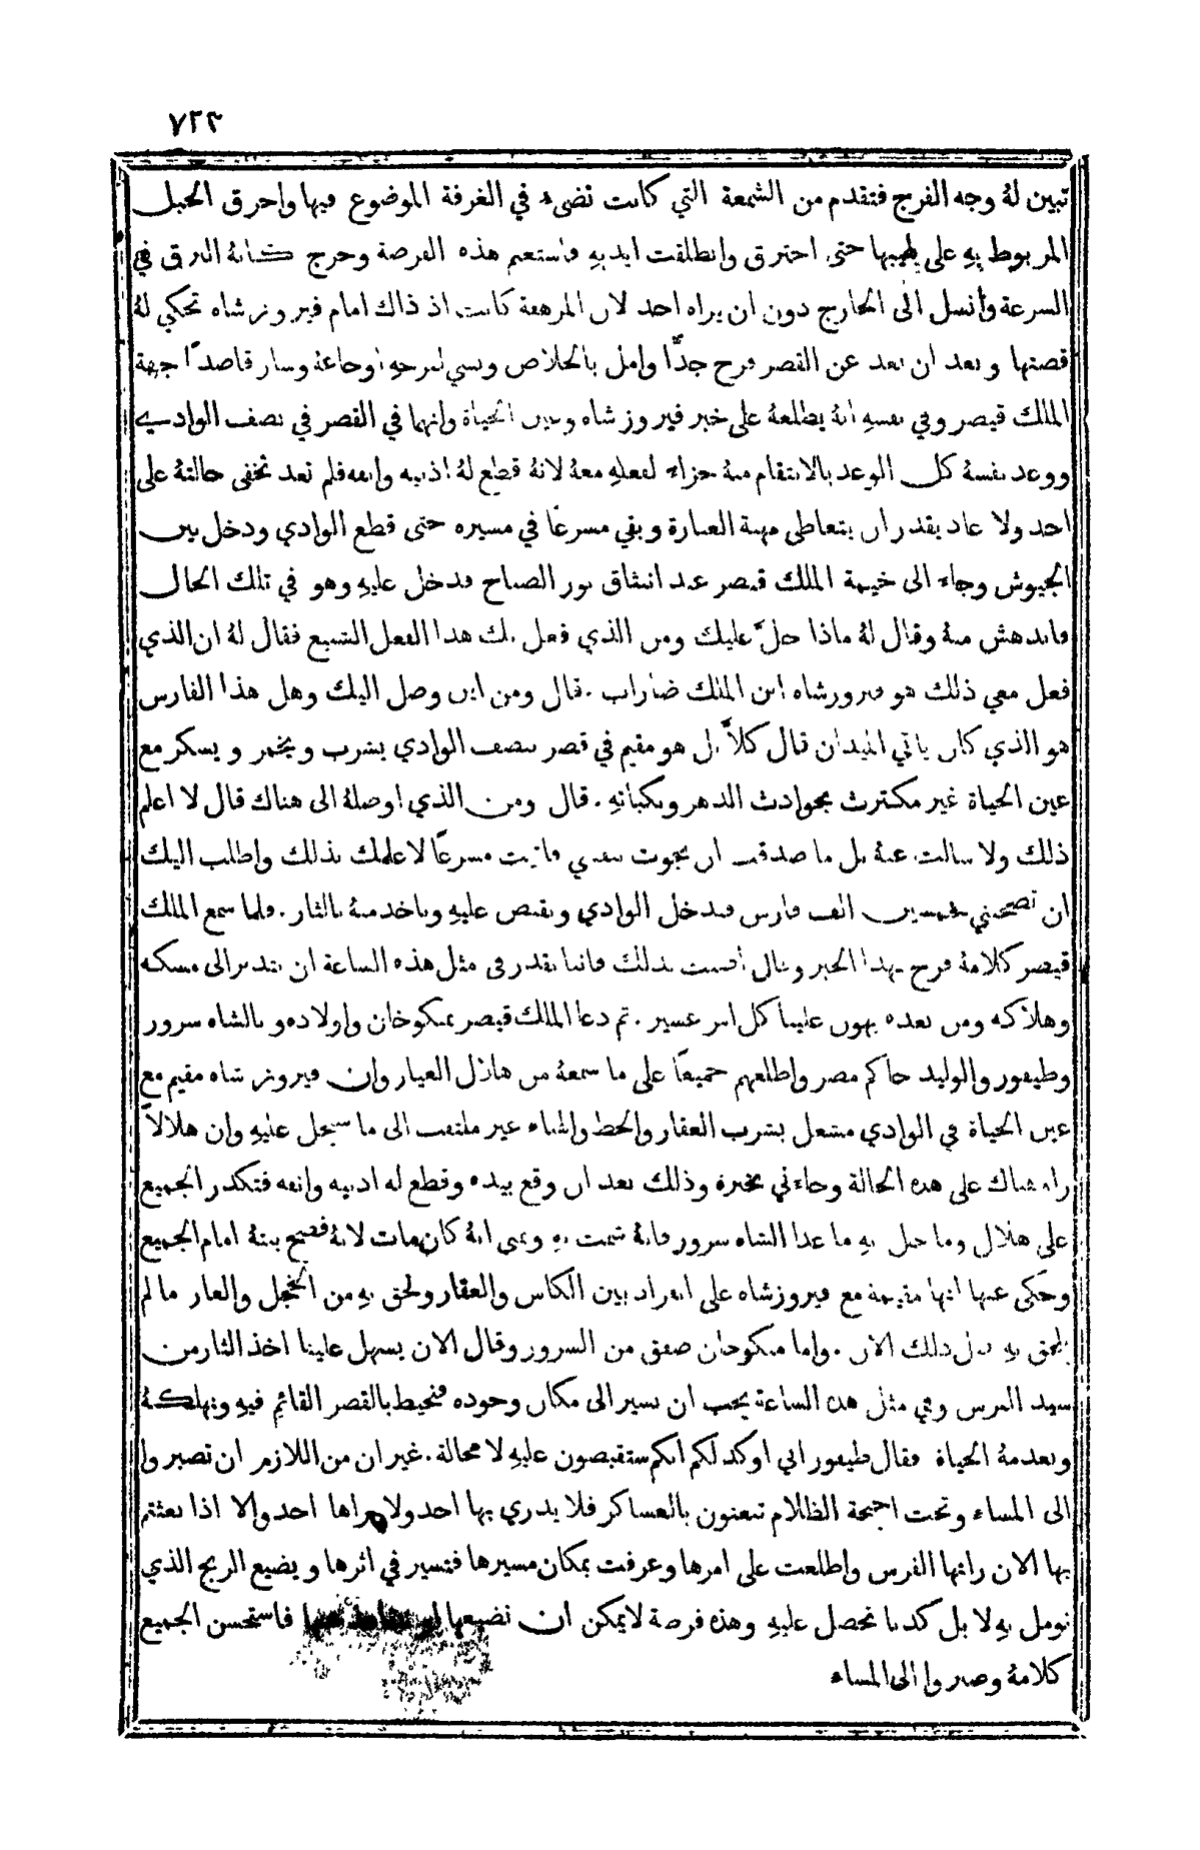 ٧٢٣
تبين لهُ وجه الفرج فتقدم من الشمعة التي كانت تضيء في الغرفة الموضوع فيها واحرق الحبل
المربوط بهِ على لهيبها حتى احترق وانطلقت ايديهِ فاستغنم هذه الفرصة وخرج كانهُ البرق في
السرعة وانسل الى الخارج دون ان يراه احد لان المرهفة كانت اذ ذاك امام فيروزشاه تحكي لهُ
قصتها وبعد ان بعد عن القصر فرح جدًّا وامل بالخلاص ونسي جرحهِ اوجاعهُ وسار قاصدًا جهة
الملك قيصر وفي نفسهِ انهُ يطلعهُ على خبر فيروزشاه وعين الحياة وانهما في القصر في نصف الوادي
ووعد نفسهُ كل الوعد بالانتقام منهُ جزاء لفعلهِ معهُ لانهُ قطع لهُ اذنيه وانفه فلم تعد تخفى حالتهُ على
احد ولا عاد يقدر ان يتعاطى مهنة العيارة وبقي مسرعًا في مسيره حتى قطع الوادي ودخل بين
الجيوش وجاء الى خيمة الملك قيصر عند انبثاق نور الصباح فدخل عليهِ وهو في تلك الحال
فاندهش منهُ وقال لهُ ماذا حلَّ عليك ومن الذي فعل بك هذا الفعل الشنيع فقال لهُ ان الذي
فعل معي ذلك هو فيروزشاه ابن الملك ضاراب . قال ومن اين وصل اليك وهل هذا الفارس
هو الذي كان ياتي الميدان قال كلاَّ بل هو مقيم في قصر بنصف الوادي يشرب ويخمر ويسكر مع
عين الحياة غير مكترث بحوادث الدهر ونكباتهِ . قال ومن الذي اوصلهُ الى هناك قال لا اعلم
ذلك ولا سالت عنهُ بل ما صدقت ان نجوت بنفسي فاتيت مسرعًا لاعلمك بذلك واطلب اليك
ان تصحبني بخمسين الف فارس فندخل الوادي ونقبض عليهِ وناخذ منهُ بالثار . فلما سمع الملك
قيصر كلامهُ فرح بهذا الخبر وقال اصبت بذلك فاننا نقدر في مثل هذه الساعة ان نتدبر الى مسكه
وهلاكه ومن بعده يهون علينا كل امر عسير . ثم دعا الملك قيصر بمنكوخان واولاده وبالشاه سرور
وطيفور والوليد حاكم مصر واطلعهم جميعًا على ما سمعهُ من هلال العيار وان فيروزشاه مقيم مع
عين الحياة في الوادي مشتغل بشرب العقار والحظ والهناء غير ملتفت الى ما سيحل عليهِ وان هلالاً
راه هناك على هذه الحالة وجاءني بخبره وذلك بعد ان وقع بيده وقطع له اذنيه وانفه فتكدر الجميع
على هلال وما حل بهِ ما عدا الشاه سرور فانهُ شمت بهِ وتمنى انهُ كان مات لانهُ فضح بنتهُ امام الجميع
وحكى عنها انها مقيمة مع فيروزشاه على انفراد بين الكاس والعقار ولحق بهِ من الخجل والعار ما لم
يلحق بهِ قبل ذلك الان . واما منكوخان صفق من السرور وقال الان يسهل علينا اخذ الثار من
سيد الفرس وفي مثل هذه الساعة يجب ان نسير الى مكان وجوده فنحيط بالقصر القائم فيهِ ونهلكهُ
ونعدمهُ الحياة فقال طيفور اني اوكد لكم انكم ستقبضون عليهِ لا محالة . غير ان من اللازم ان تصبروا
الى المساء وتحت اجنحة الظلام تبعثون بالعساكر فلا يدري بها احد ولا يراها احد والا اذا بعثتم
بها الان راتها الفرس واطلعت على امرها وعرفت بمكان مسيرها فتسير في اثرها ويضيع الربح الذي
نومل بهِ لا بل كدنا نحصل عليهِ وهذه فرصة لا يمكن ان نضيعها فاستحسن الجميع
كلامهُ وصبروا الى المساء